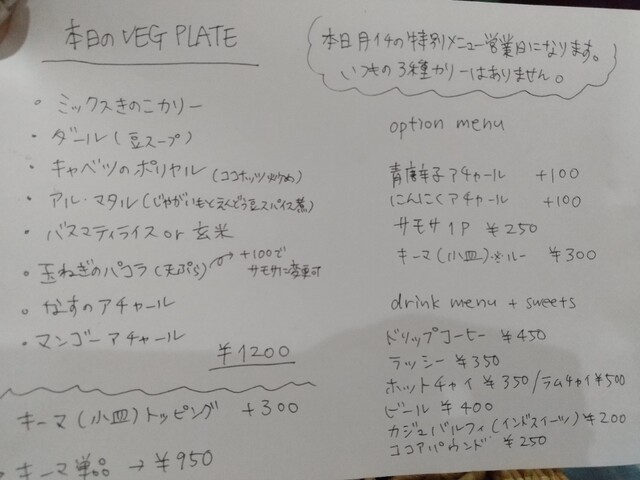 本日のVEG PLATE
・ミックスきのこカリー
・ダール(豆スープ)
・キャベツのポリヤル(ココナッツ炒め)
・アル・マタル(じゃがいもとえんどう豆スパイス煮)
・バスマティライス or 玄米
・玉ねぎのパコラ(天ぷら) +100で
サモサに変更可
・なすのアチャール
・マンゴーアチャール
¥1200
キーマ(小皿)トッピング +300
・キーマ単品 → ¥950
本日月1の特別メニュー営業日になります。
いつもの3種カリーはありません。
option menu
青唐辛子アチャール +100
にんにくアチャール +100
サモサ1P ¥250
キーマ(小皿)※ルー ¥300
drink menu + sweets
ドリップコーヒー ¥450
ラッシー ¥350
ホットチャイ ¥350/ラムチャイ¥500
ビール ¥400
カジュバルフィ(インドスイーツ)¥200
ココアパウンド ¥250